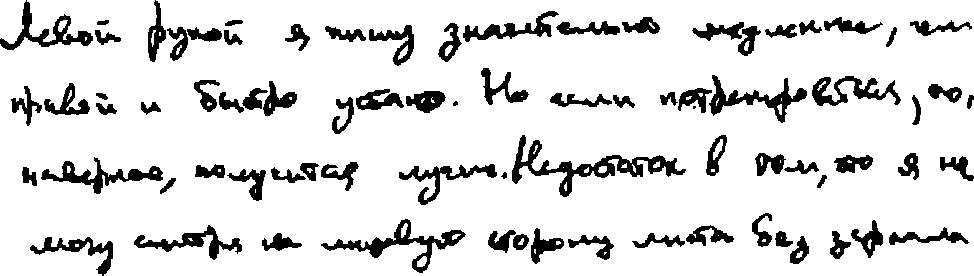 Левой рукой я пишу значительно медленнее, чем
правой и быстро устаю. Но если потренироваться, то,
наверное, получится лучше. Недостаток в том, что я не
могу смотря на лицевую сторону листа без зеркала